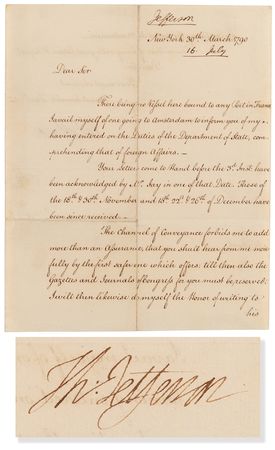 Jefferson
New York 30th. March 1790
16 July
Dear Sir
There being no Vessel here bound to any Port in France
I avail myself of one going to Amsterdam to inform you of my
having entered on the Duties of the Department of State,
comprehending that of foreign Affairs.—
Your Letters come to Hand before the 3d. Inst. have
been acknowledged by Mr. Jay in one of that Date. Those of
the & 30th. November and 22d. & 26th. of December have
been since received.—
The Channel of Conveyance forbids me to add
more than an Assurance, that you shall hear from me more
fully by the first safe one which offers: till then also the
Gazettes and Journals of Congress for you must be reserved.
I will then likewise do myself the Honor of writing to
his
Th: Jefferson